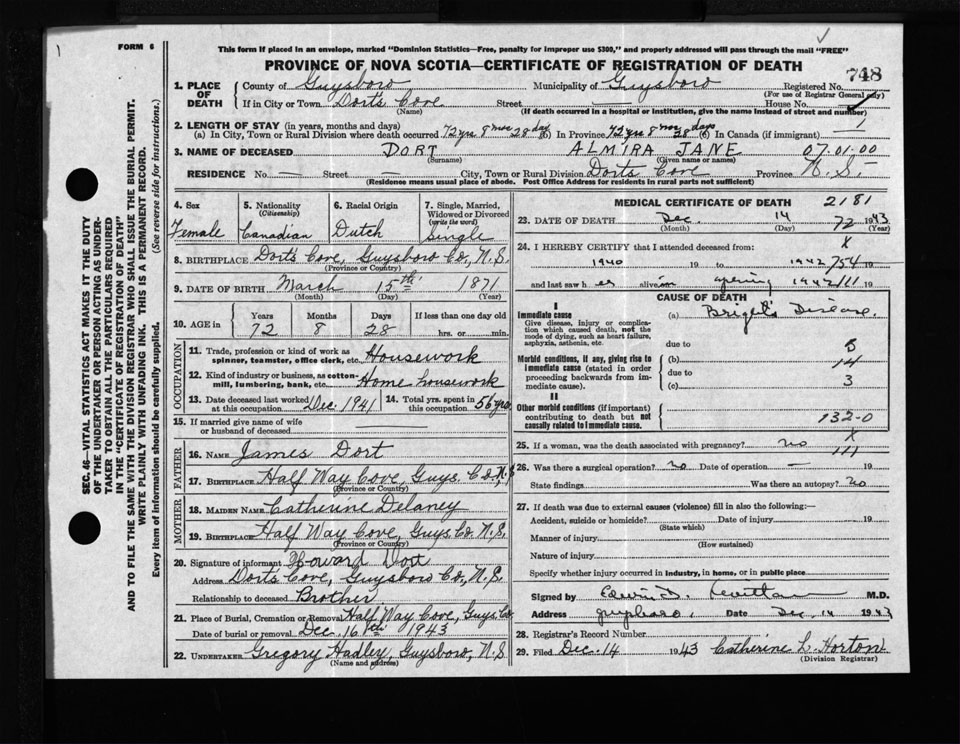 FORM 6
This form if placed in an envelope, marked "Dominion Statistics—Free, penalty for improper use $300," and properly addressed will pass through the mail "FREE"
PROVINCE OF NOVA SCOTIA—CERTIFICATE OF REGISTRATION OF DEATH
748
1. PLACE OF DEATH
County of Guysboro Municipality of Guysboro Registered No.
(For use of Registrar General only)
If in City or Town Dorts Cove Street — House No.
(Name) (If death occurred in a hospital or institution, give the name instead of street and number)
2. LENGTH OF STAY (in years, months and days)
(a) In City, Town or Rural Division where death occurred 72 yrs 8 mos 28 days (b) In Province 72 yrs 8 mos 28 days (c) In Canada (if immigrant)
3. NAME OF DECEASED DORT ALMIRA JANE 07.01.00
(Surname) (Given name or names)
RESIDENCE No. — Street — City, Town or Rural Division Dorts Cove Province N.S.
(Residence means usual place of abode. Post Office Address for residents in rural parts not sufficient)
4. Sex Female
5. Nationality (Citizenship) Canadian
6. Racial Origin Dutch
7. Single, Married, Widowed or Divorced (write the word) Single
8. BIRTHPLACE Dorts Cove, Guysboro Co, N.S.
(Province or Country)
9. DATE OF BIRTH March 15th 1871
(Month) (Day) (Year)
10. AGE in Years Months Days If less than one day old
72 8 28 hrs. or min.
OCCUPATION
11. Trade, profession or kind of work as spinner, teamster, office clerk, etc. Housework
12. Kind of industry or business, as cotton-mill, lumbering, bank, etc. Home housework
13. Date deceased last worked at this occupation Dec 1941
14. Total yrs. spent in this occupation 56 yrs
15. If married give name of wife or husband of deceased
FATHER
16. Name James Dort
17. Birthplace Half Way Cove, Guys. Co, N.S
(Province or Country)
MOTHER
18. Maiden Name Catherine Delaney
19. Birthplace Half Way Cove, Guys. Co. N.S.
(Province or Country)
20. Signature of informant Howard Dort
Address Dorts Cove, Guysboro Co, N.S.
Relationship to deceased Brother
21. Place of Burial, Cremation or Removal Half Way Cove, Guys. Co
Date of burial or removal Dec. 16th 1943
22. UNDERTAKER Gregory Hadley, Guysboro, N.S
(Name and address)
MEDICAL CERTIFICATE OF DEATH 2181
23. DATE OF DEATH Dec. 14 72 1943
(Month) (Day) (Year)
24. I HEREBY CERTIFY that I attended deceased from: X
1940 19 to 1942 754 19
and last saw her alive in spring 1942 111 19
CAUSE OF DEATH
I
Immediate cause
Give disease, injury or complication which caused death, not the mode of dying, such as heart failure, asphyxia, asthenia, etc.
(a) Bright's Disease.
due to
Morbid conditions, if any, giving rise to immediate cause (stated in order proceeding backwards from immediate cause).
(b) 14
due to
(c) 3
II
Other morbid conditions (if important) contributing to death but not causally related to immediate cause.
132-0
X
25. If a woman, was the death associated with pregnancy? no 111
26. Was there a surgical operation? no Date of operation — 19
State findings Was there an autopsy? no
27. If death was due to external causes (violence) fill in also the following:—
Accident, suicide or homicide? Date of injury 19
(State which)
Manner of injury
(How sustained)
Nature of injury
Specify whether injury occurred in industry, in home, or in public place
Signed by M.D.
Address Guysboro, Date Dec 14 1943
28. Registrar's Record Number
29. Filed Dec. 14 1943 Catherine L. Horton
(Division Registrar)
SEC. 46—VITAL STATISTICS ACT MAKES IT THE DUTY
OF THE UNDERTAKER OR PERSON ACTING AS UNDER-
TAKER TO OBTAIN ALL THE PARTICULARS REQUIRED
IN THE "CERTIFICATE OF REGISTRATION OF DEATH"
AND TO FILE THE SAME WITH THE DIVISION REGISTRAR WHO SHALL ISSUE THE BURIAL PERMIT.
WRITE PLAINLY WITH UNFADING INK. THIS IS A PERMANENT RECORD.
Every item of information should be carefully supplied. (See reverse side for instructions.)